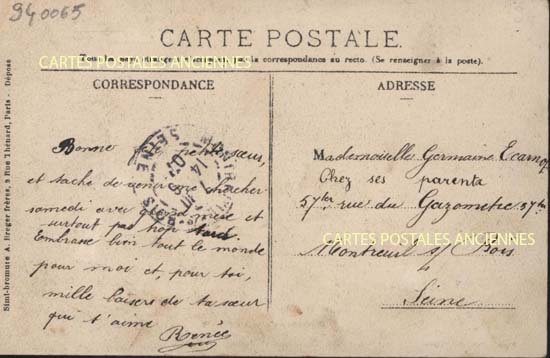 940065
CARTE POSTALE.
CARTES POSTALES ANCIENNES
la correspondance au recto. (Se renseigner à la poste).
CORRESPONDANCE
Bonne petite sœur,
et tache de venir me chercher
samedi avec
surtout pas trop tard
Embrasse bien tout le monde
pour moi et, pour toi,
mille baisers de ta sœur
qui t'aime
Renée
ADRESSE
Mademoiselle Germaine
Chez ses parents
57ter rue du Gazomètre 57ter
CARTES POSTALES ANCIENNES
Montreuil s/ Bois
Seine
Simi-bromure A. Breger frères, 9 Rue Thénard, Paris - Déposé
SEINE
14